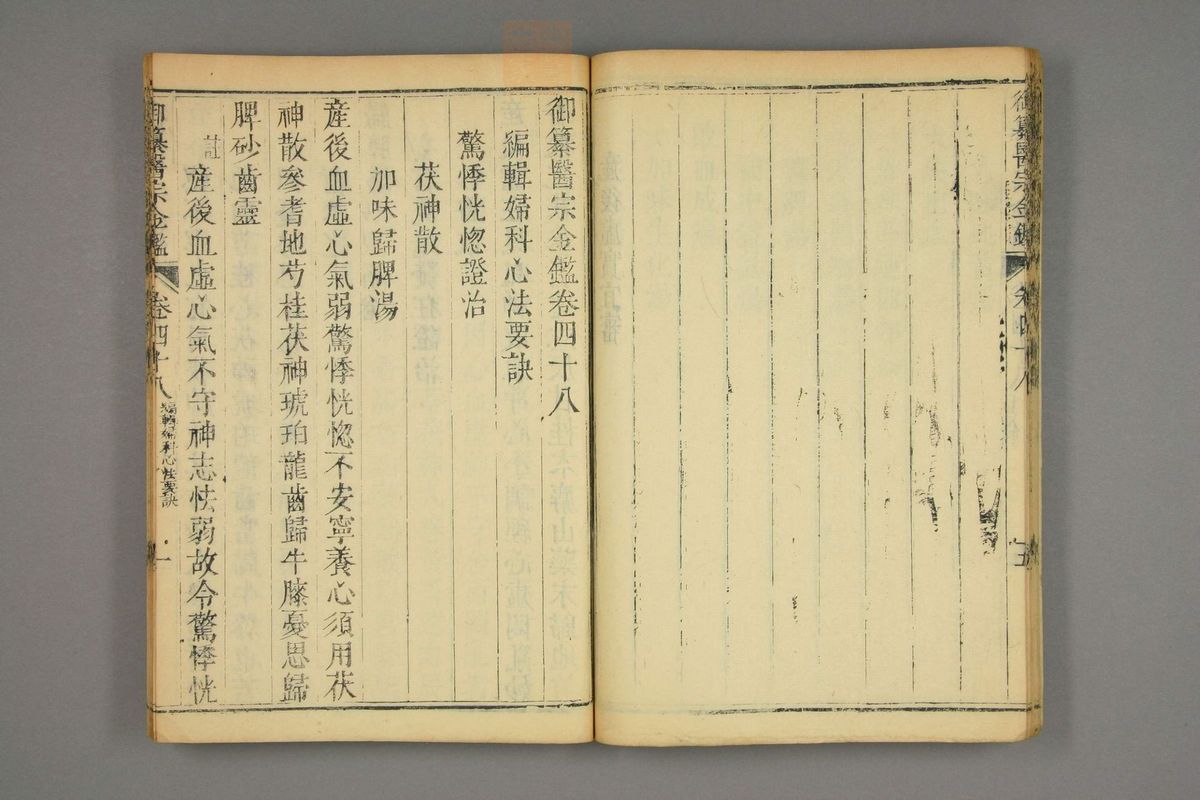 御纂醫宗金鑑卷四十八
編輯婦科心法要訣
驚悸恍惚證治
茯神散
加味歸脾湯
產後血虛心氣弱驚悸恍惚不安寧養心須用茯
神散參耆地芍桂茯神琥珀龍齒歸牛膝憂思歸
脾砂齒靈
註
產後血虛心氣不守神志怯弱故令驚悸恍
御纂醫宗金鑑
卷四十八
編輯婦科心法要訣
一
御纂醫宗金鑑
卷四十八
五